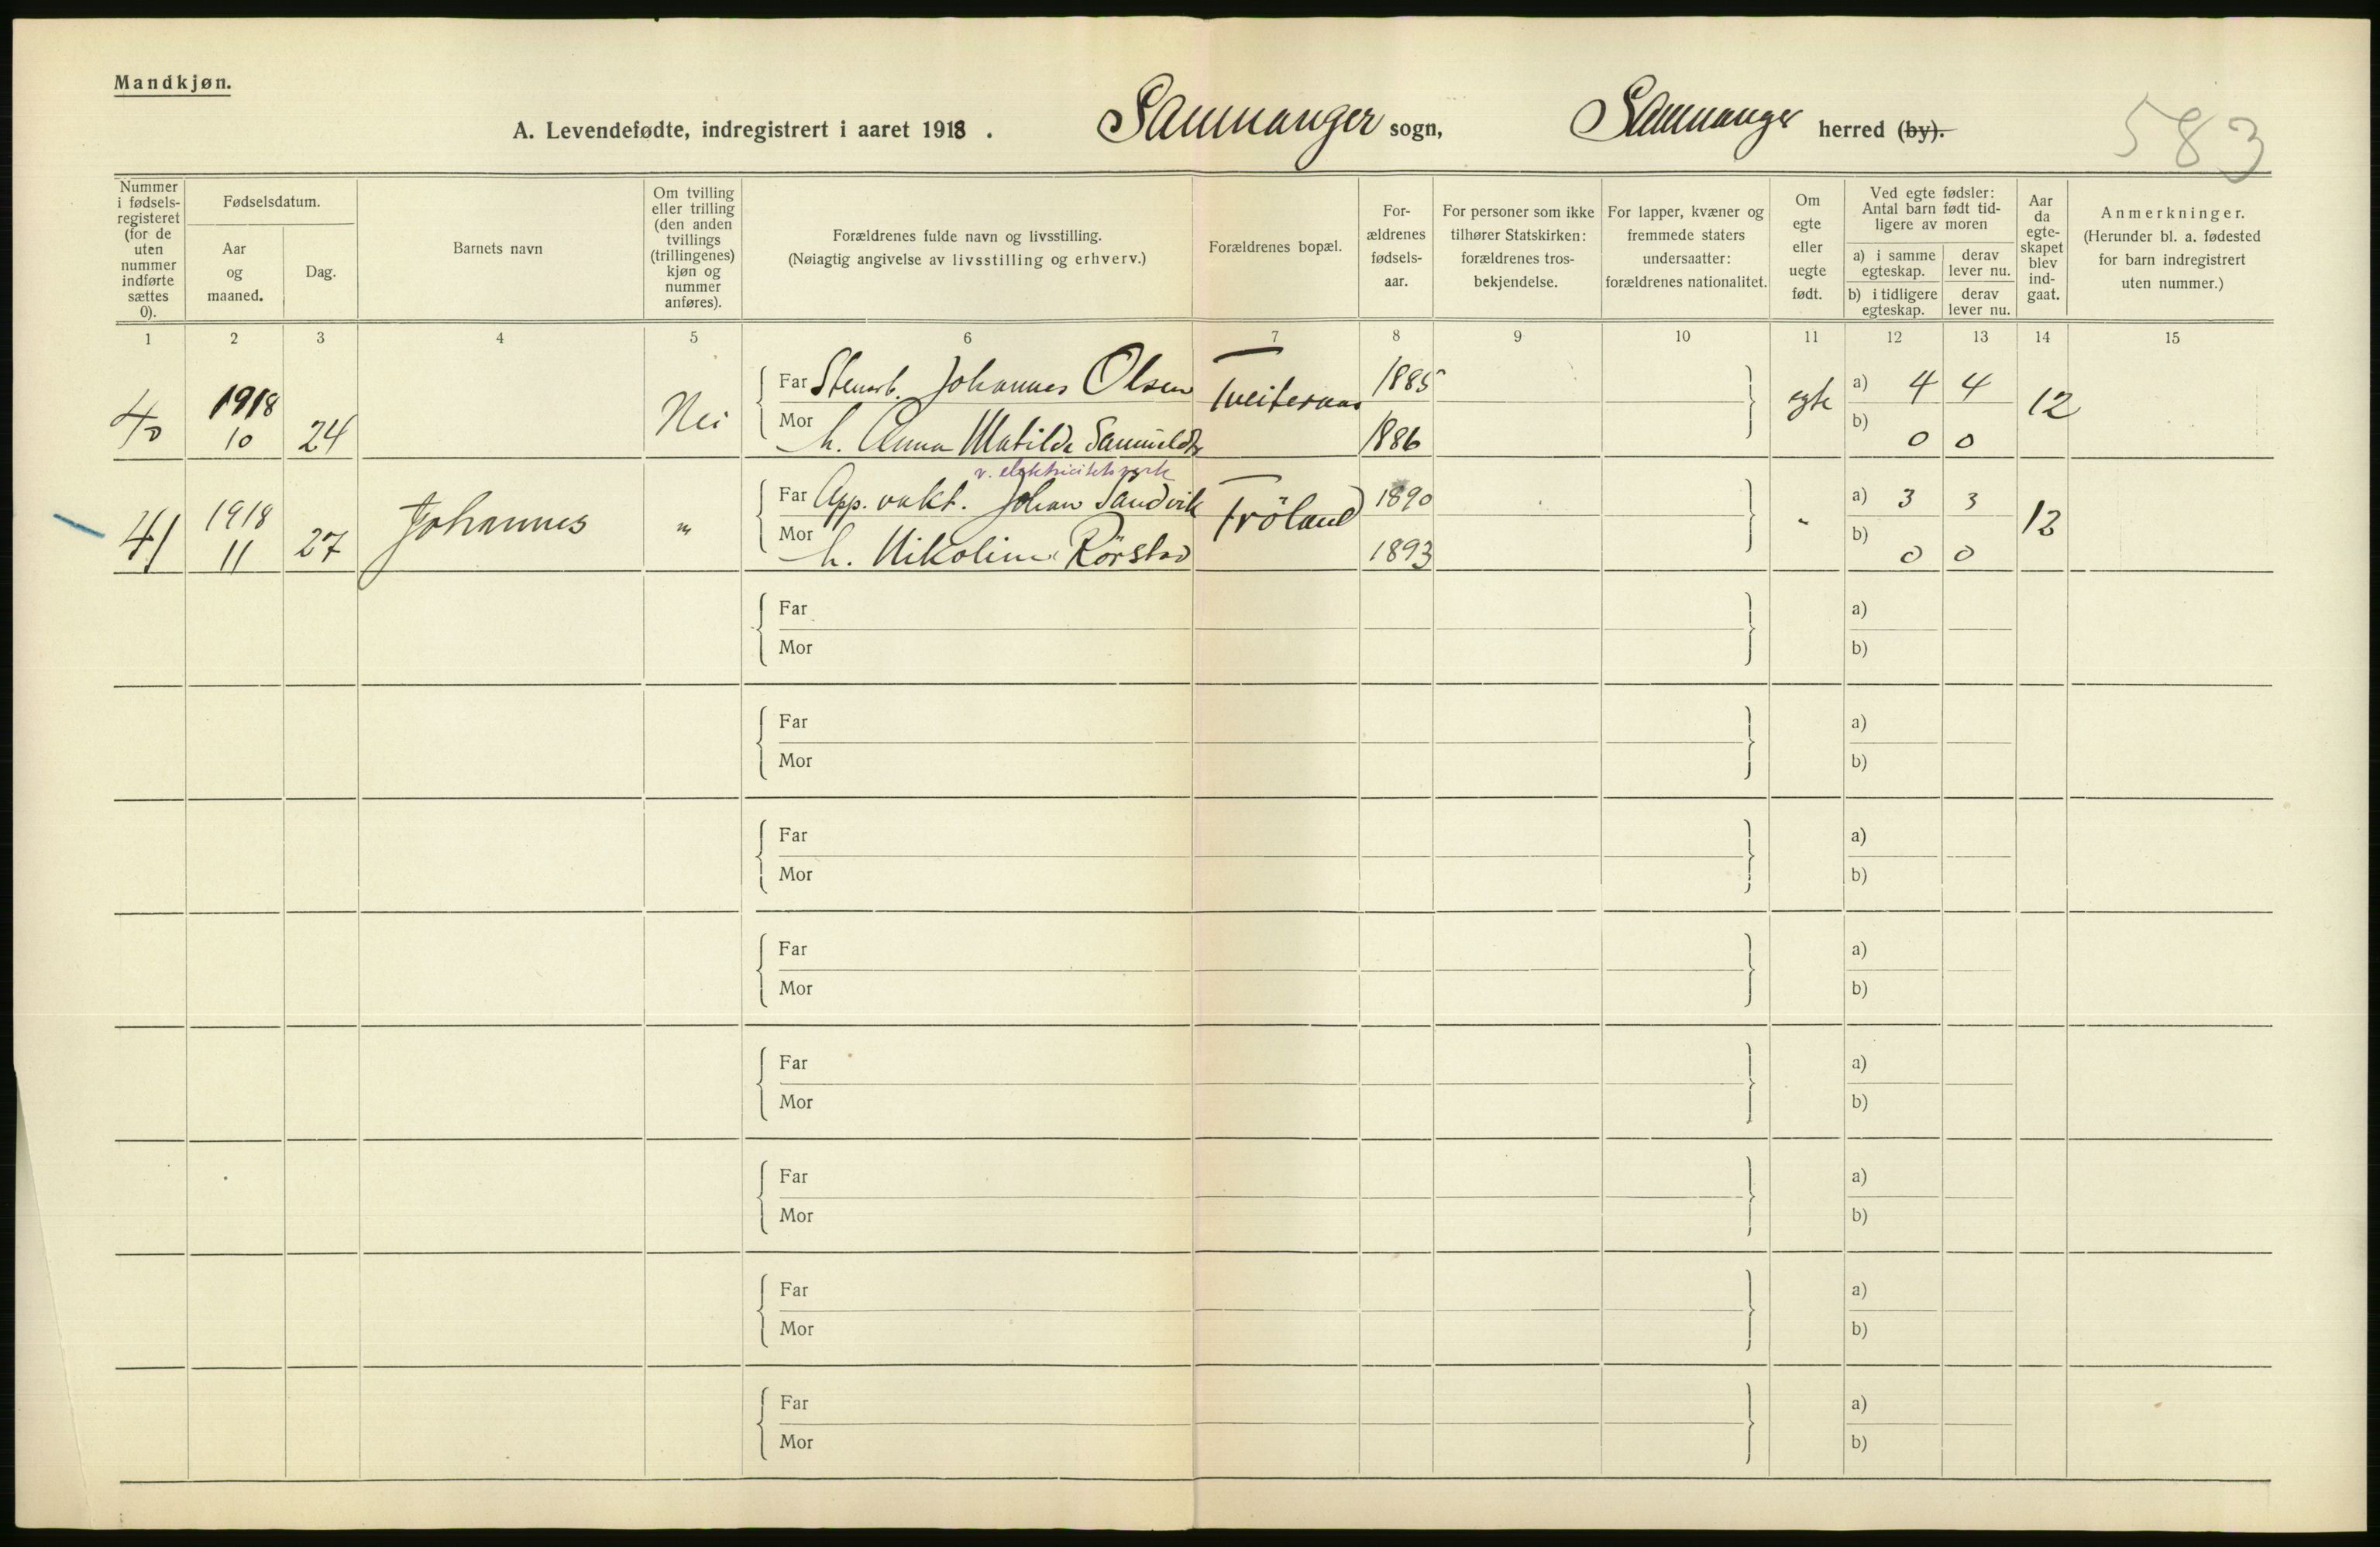 Mandkjøn.
A. Levendefødte, indregistrert i aaret 1918 . Samnanger sogn, Samnanger herred (by).
583
Nummer i fødsels-registeret (for de uten nummer indførte sættes 0).
Fødselsdatum.
Aar og maaned.
Dag.
Barnets navn
Om tvilling eller trilling (den anden tvillings (trillingenes) kjøn og nummer anføres).
Forældrenes fulde navn og livsstilling.
(Nøiagtig angivelse av livsstilling og erhverv.)
Forældrenes bopæl.
For-ældrenes fødsels-aar.
For personer som ikke tilhører Statskirken: forældrenes tros-bekjendelse.
For lapper, kvæner og fremmede staters undersaatter: forældrenes nationalitet.
Om egte eller uegte født.
Ved egte fødsler: Antal barn født tid-ligere av moren
a) i samme egteskap.
derav lever nu.
b) i tidligere egteskap.
derav lever nu.
Aar da egte-skapet blev ind-gaat.
Anmerkninger.
(Herunder bl. a. fødested for barn indregistrert uten nummer.)
1 2 3 4 5 6 7 8 9 10 11 12 13 14 15
40 1918 10 24 Nei Far Stenarb. Johannes Olsen 1885 egte a) 4 4 12
Mor h. Anna Matilde Samuelsdtr 1886 b) 0 0
v. elektricitetsverk
41 1918 11 27 Johannes " Far App. vakt. Johan Sandvik Frøland 1890 " a) 3 3 13
Mor h. Nikoline Rørstad 1893 b) 0 0
Far a)
Mor b)
Far a)
Mor b)
Far a)
Mor b)
Far a)
Mor b)
Far a)
Mor b)
Far a)
Mor b)
Far a)
Mor b)
Far a)
Mor b)